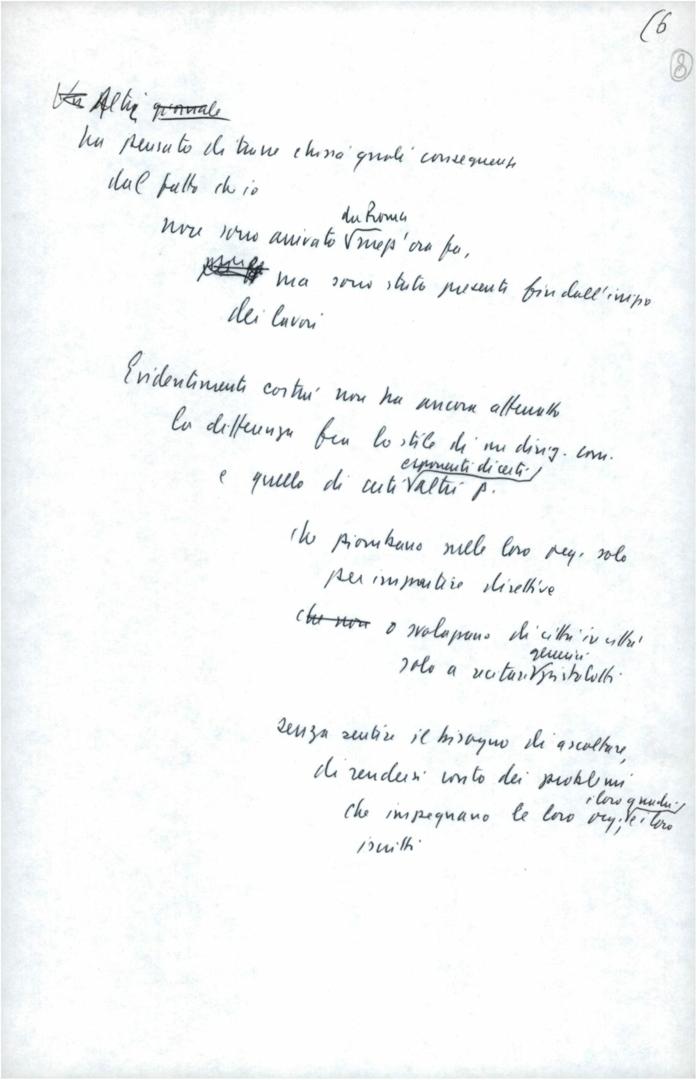 (6
8
Un Altri giornale
ha pensato di trarre chissà quali conseguenze
dal fatto ch io
non sono arrivato da Roma mezz'ora fa,
ma sono stato presente fin dall'inizio
dei lavori
Evidentemente costui non ha ancora afferrato
la differenza fra lo stile di un dirig. com.
e quello di certi esponenti di certi altri p.
che piombano nelle loro org. solo
per impartire direttive
che non o svolazzano di città in città
solo a recitare generici pistolotti
senza sentire il bisogno di ascoltare,
di rendersi conto dei problemi
che impegnano le loro org., i loro quadri, e i loro
iscritti